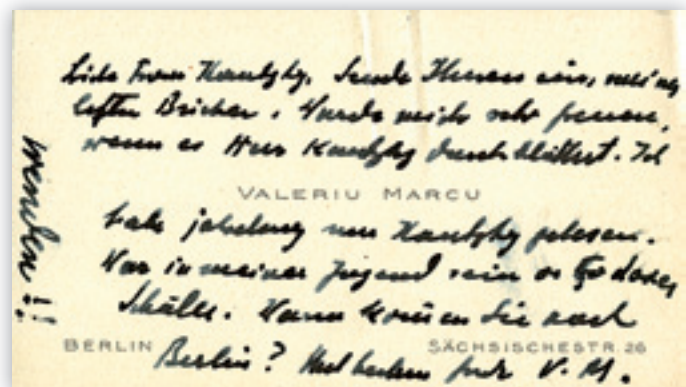 Liebe Frau Kautsky. Sende Ihnen ein, meiner
letzten Bücher. Würde mich sehr freuen,
wenn es Herr Kautsky durchblättert. Ich
VALERIU MARCU
habe jahrelang nur Kautsky gelesen.
War in meiner Jugend sein orthodoxer
Schüler. Wann kommen Sie nach
BERLIN
SÄCHSISCHESTR. 26
Berlin? Ihr V. M.
wenden!!